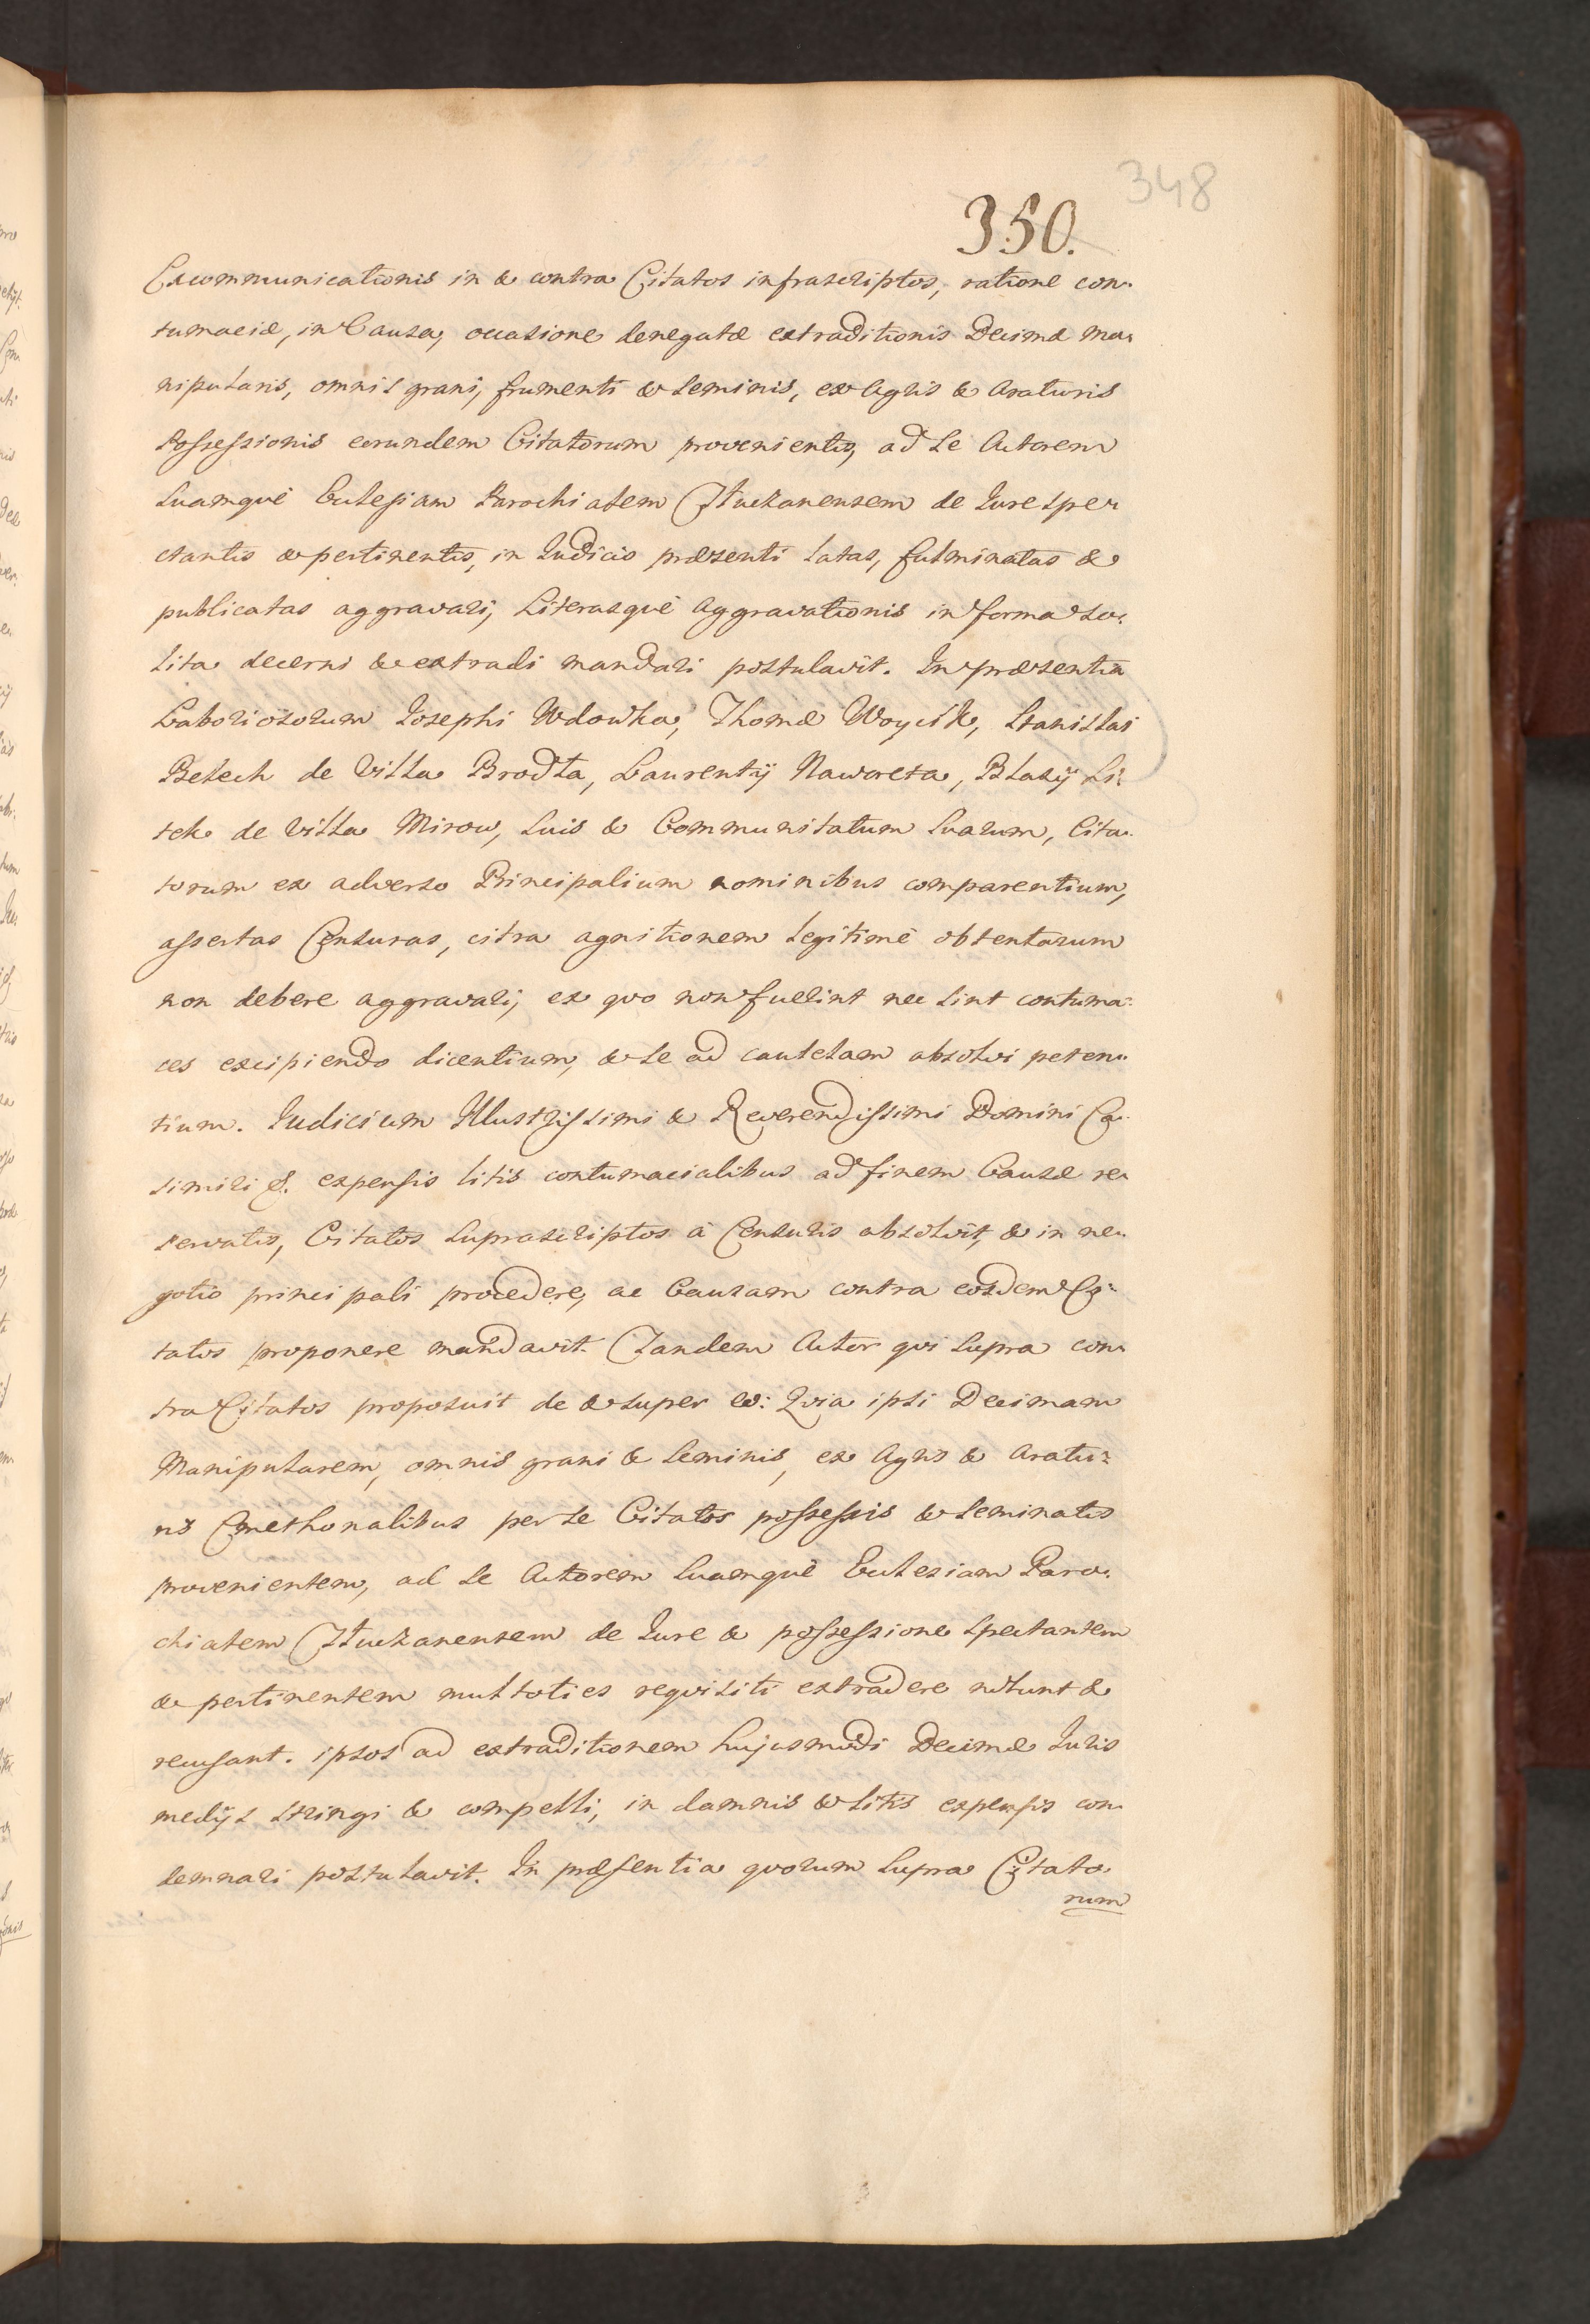 348
350.
Excommunicationis in & contra Citatos infrascriptos, ratione con-
tumaciæ, in Causa, occasione denegatæ extraditionis Decimæ ma-
nipularis, omnis grani, frumenti & seminis, ex Agris & Araturis
Possessionis eorundem Citatorum provenientis, ad se Actorem
suamquè Ecclesiam Parochialem de Iure spe-
ctantis & pertinentis, in Iudicio præsenti latas, fulminatas &
publicatas aggravari, Literasquè Aggravationis in forma so-
lita decerni & extradi mandari postulavit. In præsentia
Laboriosorum Iosephi Wdowka, Thomæ Woycik, Stanislai
Belech de Villa Brodła, Laurentij Nawareta, Blasij Li-
tek de Villa Mirow, suis & Communitatum suarum, Cita-
torum ex adverso Principalium nominibus comparentium,
assertas Censuras, citra agnitionem legitimè obtentarum
non debere aggravari, ex quo non fuerint nec sint contuma-
ces excipiendo dicentium, & se ad cautelam absolvi peten-
tium. Iudicium Illustrissimi & Reverendissimi Domini Ca-
simiri &. expensis litis contumacialibus ad finem Causæ re-
servatis, Citatos suprascriptos à Censuris absolvit, & in ne-
gotio principali procedere, ac Causam contra eosdem Ci-
tatos proponere mandavit. Tandem Actor qvi supra con-
tra Citatos proposuit de & super eo: Qvia ipsi Decimam
Manipularem, omnis grani & seminis, ex Agris & Aratu-
ris Cmethonalibus per se Citatos possessis & seminatis
provenientem, ad se Actorem suamquè Ecclesiam Paro-
chialem de Iure & possessione spectantem
& pertinentem multoties reqvisiti extradere nolunt &
recusant. ipsos ad extraditionem hujusmodi Decimæ Iuris
medijs stringi & compelli, in damnis & litis expensis con-
demnari postulavit. In præsentia qvorum supra Citato-
rum